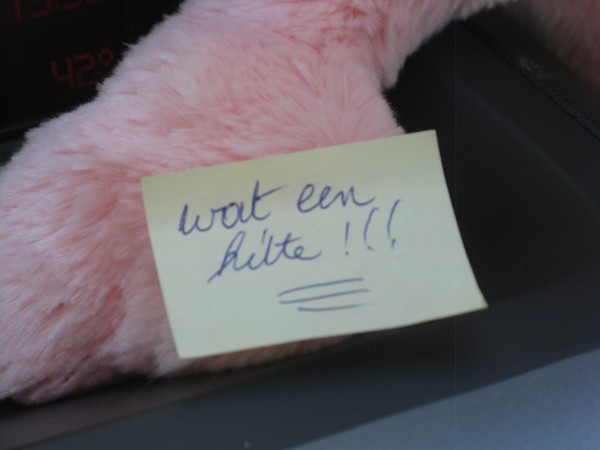 42°
wat een
hitte !!!